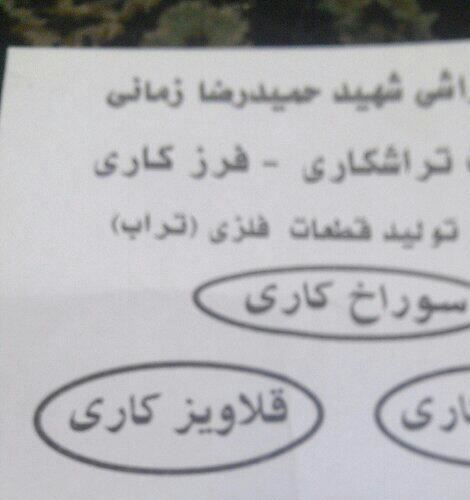 شهید حمیدرضا زمانی
تراشکاری - فرز کاری
تولید قطعات فلزی (تراب)
سوراخ کاری
قلاویز کاری